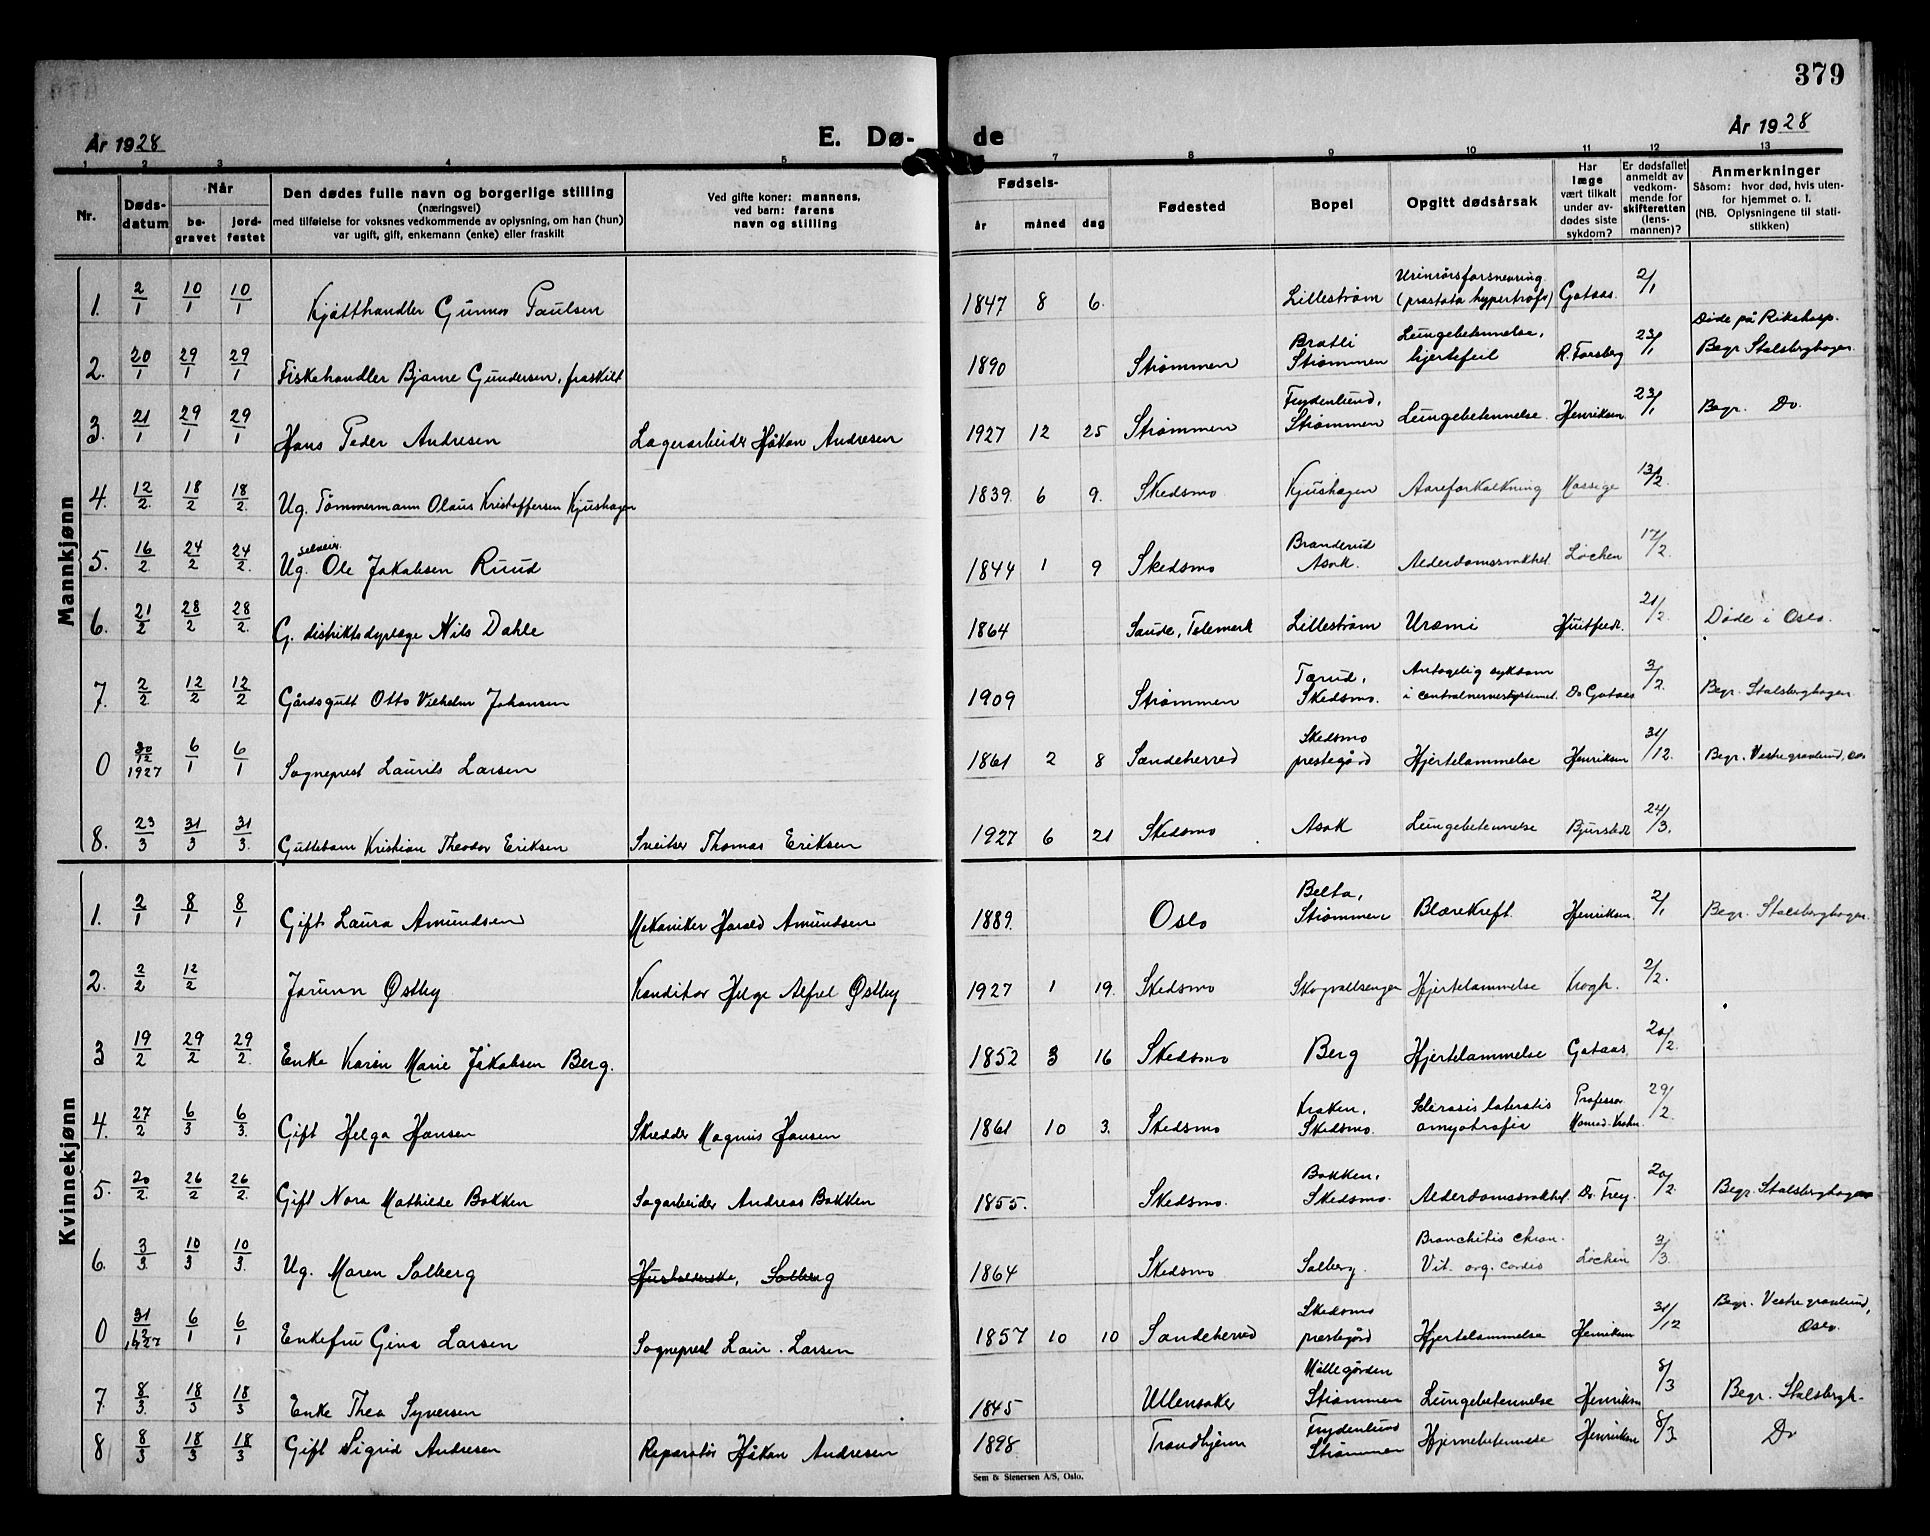 379
År 1928
E. Dø- de
År 1928
1 2 3 4 5 7 8 9 10 11 12 13
Nr.
Døds-
datum
Når
be-
gravet
jord-
festet
Den dødes fulle navn og borgerlige stilling
(næringsvei)
med tilføielse for voksnes vedkommende av oplysning, om han (hun)
var ugift, gift, enkemann (enke) eller fraskilt
Ved gifte koner: mannens,
ved barn: farens
navn og stilling
Fødsels-
år måned dag
Fødested
Bopel
Opgitt dødsårsak
Har
læge
vært tilkalt
under av-
dødes siste
sykdom?
Er dødsfallet
anmeldt av
vedkom-
mende for
skifteretten
(lens-
mannen)?
Anmerkninger
Såsom: hvor død, hvis uten-
for hjemmet o. l.
(NB. Oplysningene til stati-
stikken)
Mannkjønn
1. 2/1 10/1 10/1 Kjøtthandler Gunnar Paulsen 1847 8 6. Lillestrøm Urinrørsforsnevring (prostata hypertrofi) Gotaas. 2/1
2. 20/1 29/1 29/1 Fiskehandler Bjarne Gundersen, fraskilt 1890 Strømmen Bråtli Strømmen Lungebetennelse, hjertefeil R. Forsberg 23/1 Døde på Rikshosp. Begr. Stalsberghagen.
3. 21/1 29/1 29/1 Hans Peder Andresen Lagerarbeider Håkon Andresen 1927 12 25 Strømmen Frydenlund, Strømmen Lungebetennelse. Henriksen 23/1 Begr. Do.
4. 12/2 18/2 18/2. Ug. Tømmermann Olaus Kristoffersen Kjushagen 1839. 6 9. Skedsmo Kjushagen Aareforkalkning 13/2.
5. 16/2 24/2 24/2. Ug. selveier Ole Jakobsen Ruud 1844 1 9 Skedsmo Branderud Asak. Alderdomssvakhet Løchen 17/2.
6. 21/2 28/2 28/2. G. distriktsdyrlæge Nils Dahle 1864 Saude, Telemark Lillestrøm Uræmi Huitfeldt. 21/2. Døde i Oslo.
7. 2/2 12/2 12/2 Gårdsgutt Otto Vilhelm Johansen 1909 Strømmen Tærud, Skedsmo. Antagelig sykdom i centralnervesystemet. Dr Gotaas 3/2. Begr. Stalsberghagen
0 30/12 1927 6/1 6/1 Sogneprest Laurits Larsen 1861 2 8 Sandeherred Skedsmo prestegård Hjertelammelse Henriksen 31/12. Begr. Vestre gravlund,
8. 23/3 31/3 31/3. Guttebarn Kristian Theodor Eriksen Sveitser Thomas Eriksen 1927 6 21 Skedsmo Asak Lungebetennelse Bjurstedt 24/3.
Kvinnekjønn
1. 2/1 8/1 8/1 Gift Laura Amundsen Mekaniker Harald Amundsen 1889. Oslo Belta, Strømmen Blærekreft. Henriksen 2/1 Begr. Stalsberghagen.
2. 2/2 12/2 Jorunn Østby Konditor Helge Alfred Østby 1927 1 19. Skedsmo Skogvallsengen Hjertelammelse Krogh. 2/2.
3 19/2 29/2 29/2. Enke Karen Marie Jakobsen Berg. 1852 3 16 Skedsmo Berg Hjertelammelse Gotaas 20/2.
4. 27/2 6/3 6/3. Gift Helga Hansen Skredder Magnus Hansen 1861 10 3. Skedsmo Kraken, Skedsmo. Sclerosis lateralis amyotrofia Professor Monrad-Krohn. 29/2.
5. 20/2. 26/2 26/2. Gift Nora Mathilde Bakken Sagarbeider Andreas Bakken 1855. Skedsmo. Bakken, Skedsmo. Alderdomssvakhet Dr. Frey. 20/2. Begr. Stalsberghagen
6. 3/3. 10/3 10/3. Ug. Maren Solberg Husholderske, Solberg 1864 Skedsmo Solberg. Bronchitis chron. Vit. org. cordis Løchen 3/3.
0 31/12 1927 6/1 6/1 Enkefru Gina Larsen Sogneprest Laur. Larsen 1857 10 10 Sandeherred Skedsmo prestegård Hjertelammelse Henriksen 31/12 Begr. Vestre gravlund, Oslo.
7. 8/3. 18/3 18/3 Enke Thea Syversen 1845 Ullensaker Møllegården Strømmen Lungebetennelse Henriksen 8/3 Begr. Stalsbergh.
8 8/3 18/3 18/3 Gift Sigrid Andresen Reparatør Håkon Andresen 1898 Trondhjem Frydenlund Strømmen Hjernebetennelse Henriksen 8/3. Do
Sem & Stenersen A/S, Oslo.